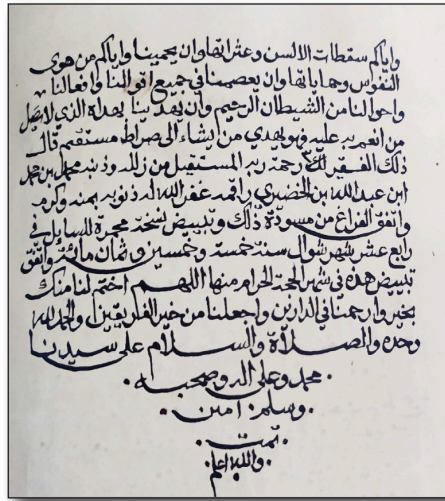 واياكم سقطات الالسن وعثراتها وان يحمينا واياكم من هوى
النفوس وجناياتها وان يعصمنا في جميع اقوالنا وافعالنا
واحوالنا من الشيطان الرجيم وان يهدينا بهداه الذي لا يضل
من انعم به عليه فهو يهدي من يشاء الى صراط مستقيم قال
ذلك الفقير الى رحمة ربه المستقيل من زلله وذنبه محمد بن محمد
ابن عبد الله بن الخضري راقمه غفر الله له ذنوبه بمنه وكرمه
واتفق الفراغ من مسودة ذلك وتبييض نسخة محررة للسايل في
رابع عشر شهر شوال سنة خمسة وخمسين وثمان مائة واتفق
تبييض هذه في شهر الحجة الحرام منها اللهم اختم لنا منك
بخير وارحمنا في الدارين واجعلنا من خير الفريقين والحمد لله
وحده والصلاة والسلام على سيدنا
محمد وعلى اله وصحبه
وسلم امين
تمت
والله اعلم